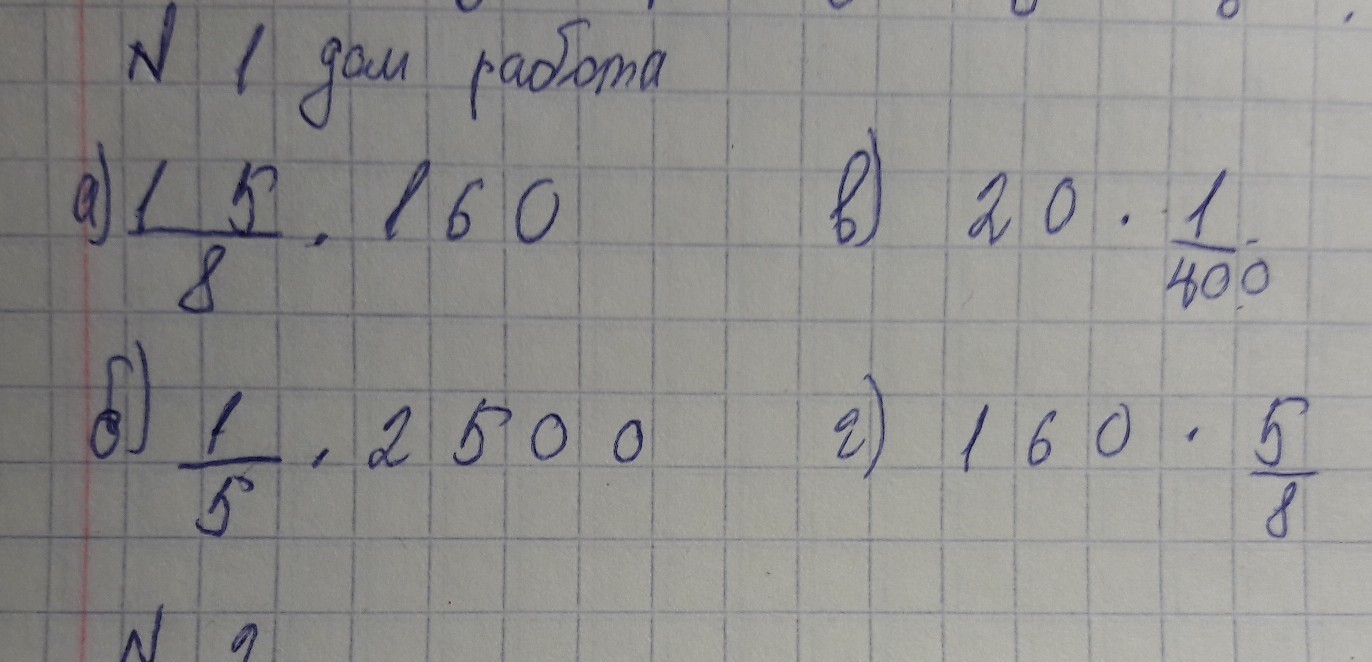 N 1 дом работа
а) 15/8 · 160
в) 20 · 1/400
б) 1/5 · 2500
г) 160 · 5/8
N 2